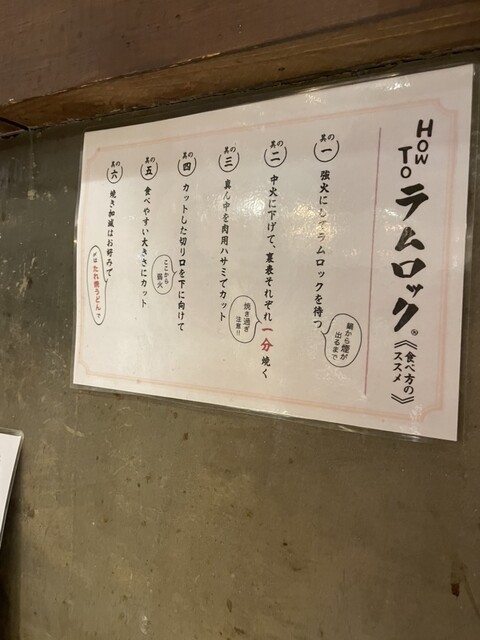 HOW TO ラムロック®
《食べ方のススメ》
其の一 強火にしてラムロックを待つ
鍋から煙が出るまで
其の二 中火に下げて、裏表それぞれ一分焼く
焼き過ぎ注意!!
其の三 真ん中を肉用ハサミでカット
其の四 カットした切り口を下に向けて
ここから弱火
其の五 食べやすい大きさにカット
其の六 焼き加減はお好みで
〆は たれ焼うどんで